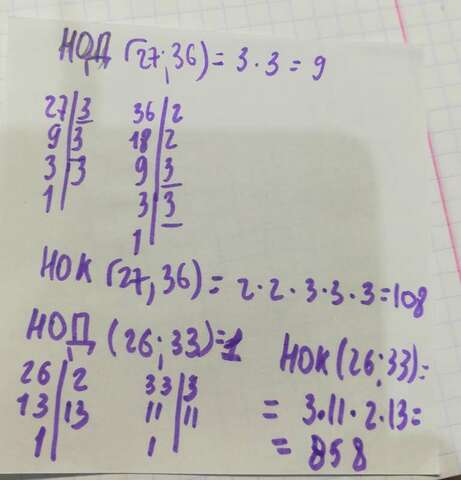 НОД (27; 36) = 3 · 3 = 9
27 | 3
9 | 3
3 | 3
1 |
36 | 2
18 | 2
9 | 3
3 | 3
1 |
НОК (27; 36) = 2 · 2 · 3 · 3 · 3 = 108
НОД (26; 33) = 1
26 | 2
13 | 13
1 |
33 | 3
11 | 11
1 |
НОК (26; 33) =
= 3 · 11 · 2 · 13 =
= 858